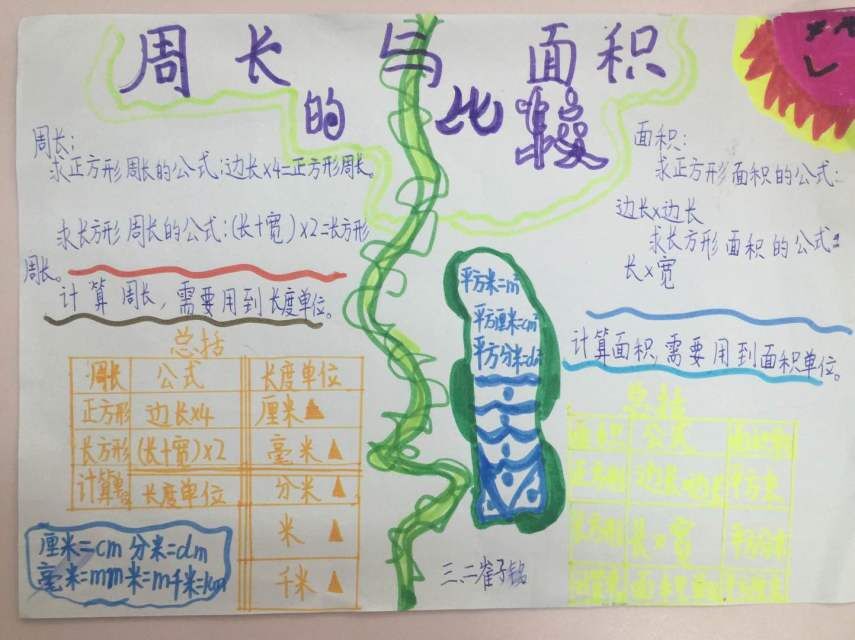 周长与面积
的比较
周长：
求正方形周长的公式：边长×4=正方形周长。
求长方形周长的公式：(长+宽)×2=长方形
周长。
计算周长，需要用到长度单位。
总结
周长 公式 长度单位
正方形 边长×4 厘米
长方形 (长+宽)×2 毫米
长度单位 分米
米
千米
厘米=cm 分米=dm
毫米=mm 米=m 千米=km
平方米=m²
平方厘米=cm²
平方分米=dm²
三、二崔子铭
面积：
求正方形面积的公式：
边长×边长
求长方形面积的公式：
长×宽
计算面积，需要用到面积单位。
总结
面积 公式
正方形 边长×边长 平方米
长方形 长×宽 平方分米